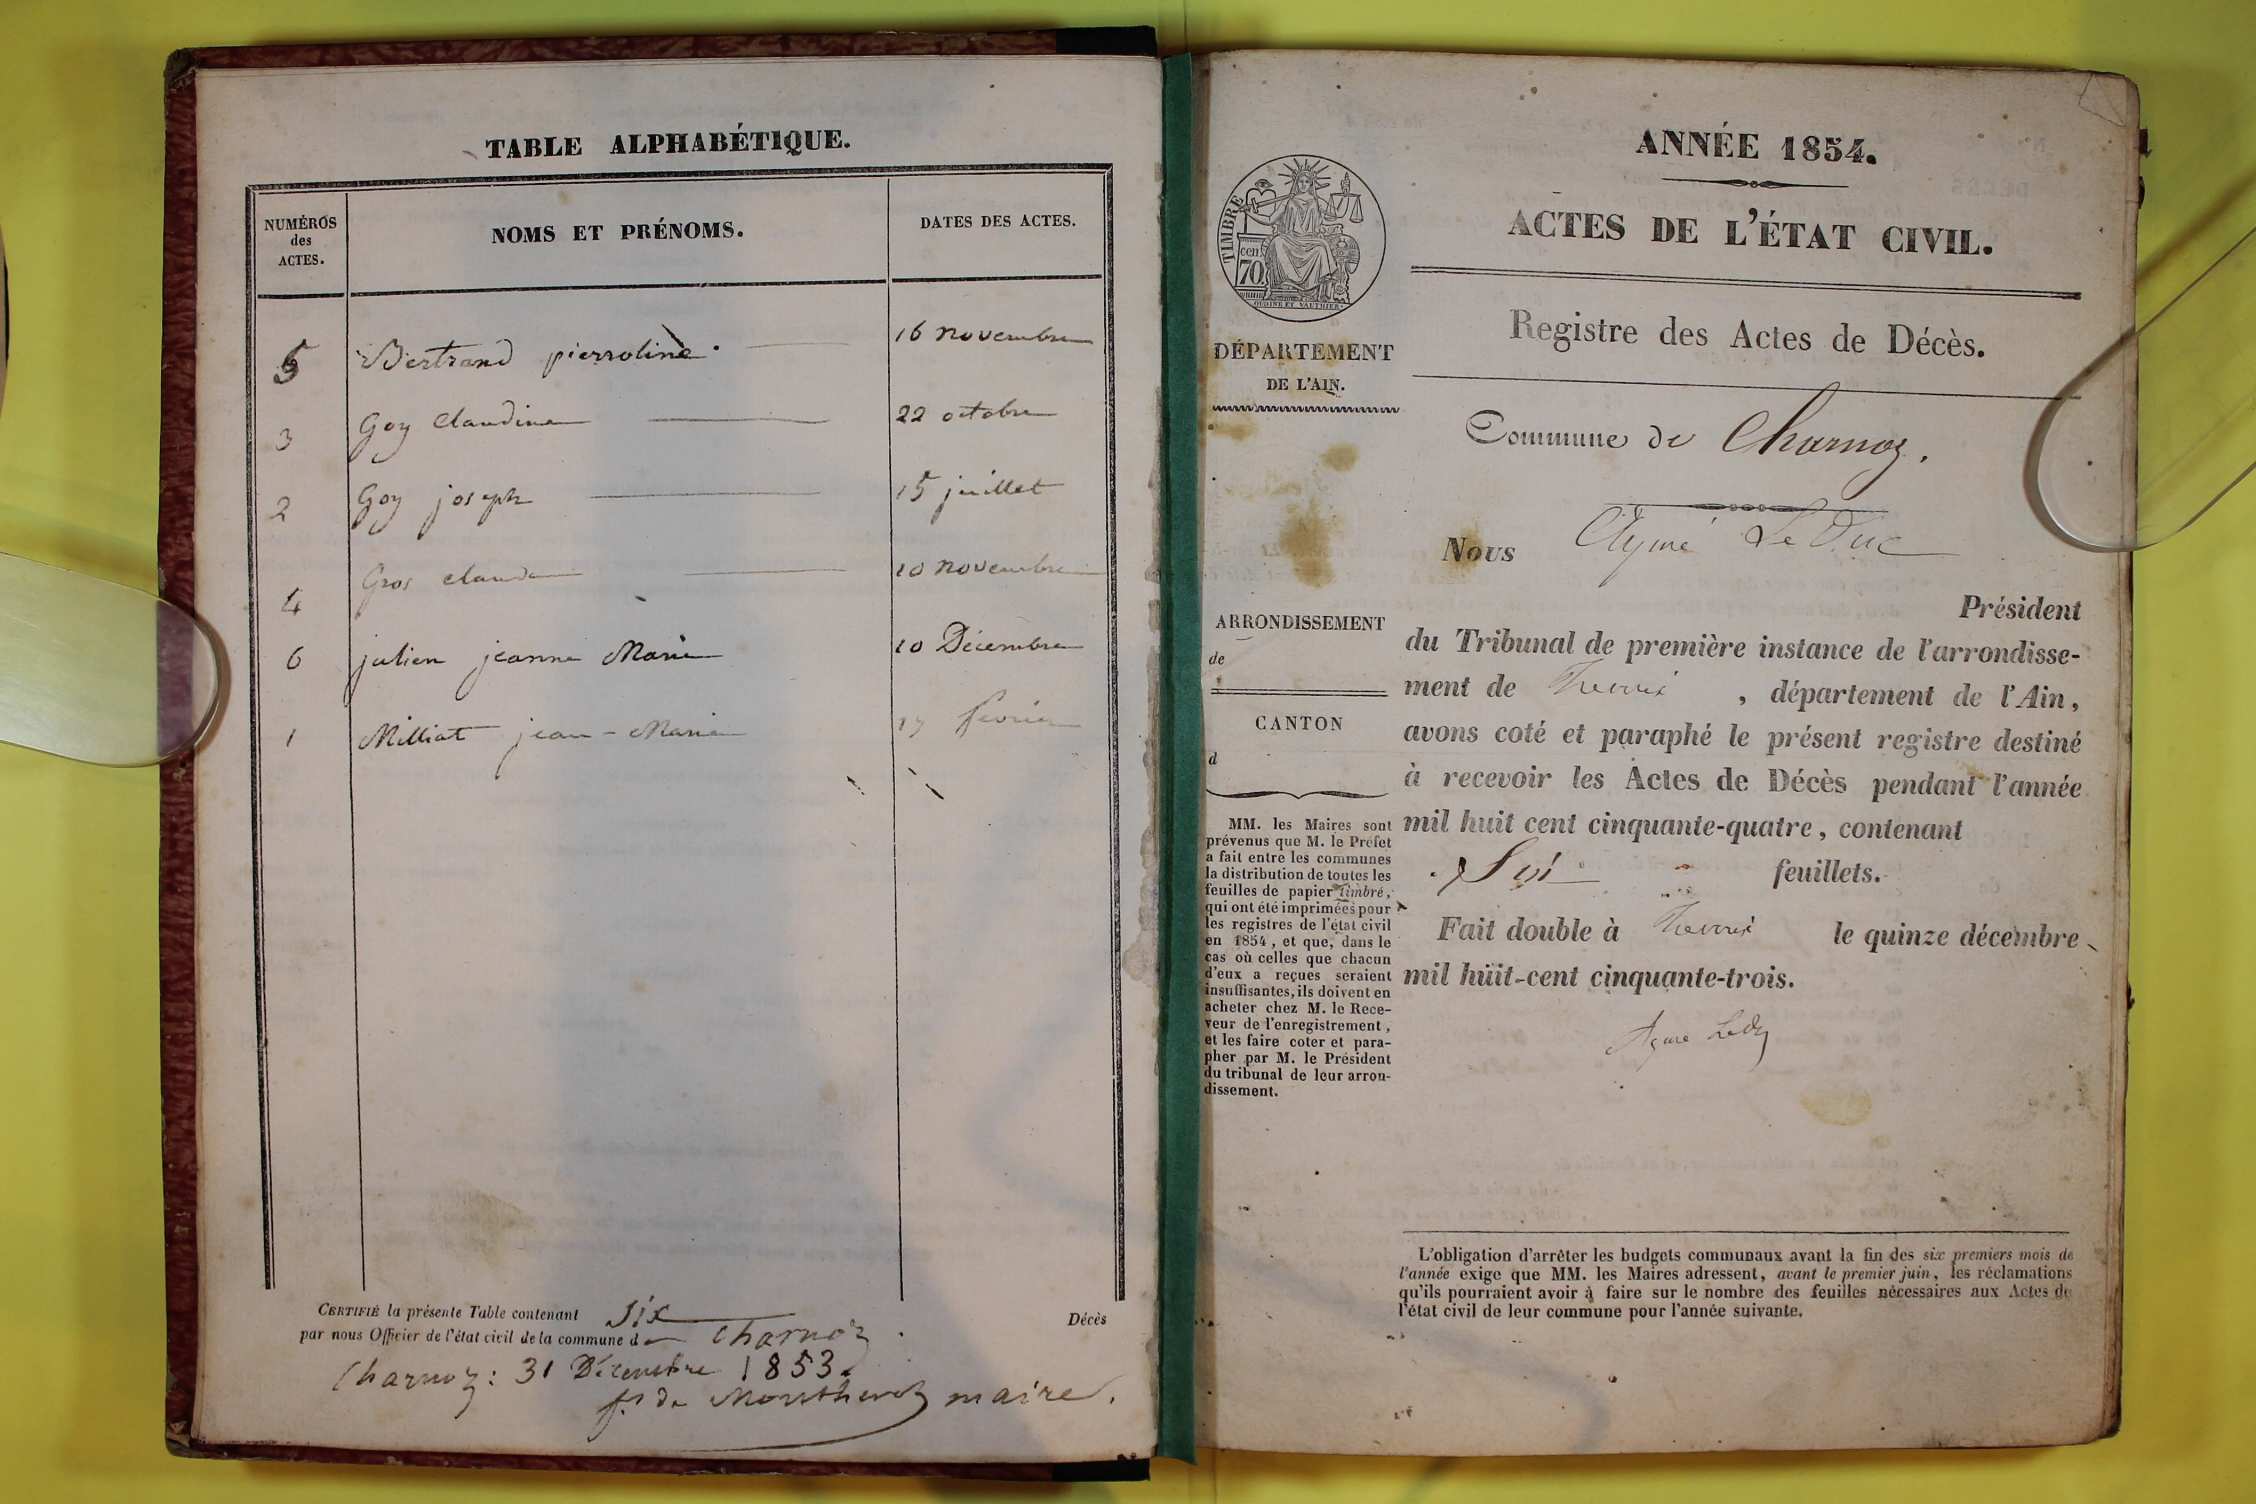 TABLE ALPHABÉTIQUE.
NUMÉROS
des
ACTES.
NOMS ET PRÉNOMS.
DATES DES ACTES.
5 Bertrand pierroline 16 novembre
3 Goy Claudine 22 octobre
2 Goy joseph 15 juillet
4 Gros claude 10 novembre
6 julien jeanne Marie 10 Décembre
1 Milliat jean-Marie 17 fevrier
CERTIFIÉ la présente Table contenant six Décès
par nous Officier de l'état civil de la commune de Charnoz.
Charnoz : 31 Décembre 1853.
de maire.
ANNÉE 1854.
ACTES DE L'ÉTAT CIVIL.
TIMBRE
cen.
70
OUDINÉ ET VAUTHIER
Registre des Actes de Décès.
DÉPARTEMENT
DE L'AIN.
Commune de Charnoz.
Nous Aymé LeDuc
Président
du Tribunal de première instance de l'arrondisse-
ment de Trevoux, département de l'Ain,
avons coté et paraphé le présent registre destiné
à recevoir les Actes de Décès pendant l'année
mil huit cent cinquante-quatre, contenant
Six feuillets.
Fait double à Trevoux le quinze décembre
mil huit-cent cinquante-trois.
Aymé LeDuc
ARRONDISSEMENT
de
CANTON
d
MM. les Maires sont
prévenus que M. le Préfet
a fait entre les communes
la distribution de toutes les
feuilles de papier timbré,
qui ont été imprimées pour
les registres de l'état civil
en 1854, et que, dans le
cas où celles que chacun
d'eux a reçues seraient
insuffisantes, ils doivent en
acheter chez M. le Rece-
veur de l'enregistrement,
et les faire coter et para-
pher par M. le Président
du tribunal de leur arron-
dissement.
L'obligation d'arrêter les budgets communaux avant la fin des six premiers mois de
l'année exige que MM. les Maires adressent, avant le premier juin, les réclamations
qu'ils pourraient avoir à faire sur le nombre des feuilles nécessaires aux Actes de
l'état civil de leur commune pour l'année suivante.